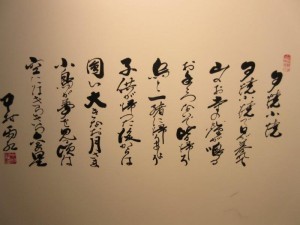 夕焼小焼
夕焼小焼で日が暮れて
山のお寺の鐘が鳴る
お手々つないで皆帰ろ
烏と一緒に帰りませう
子供が帰った後からは
圓い大きなお月さま
小鳥が夢を見る頃は
空にはきらきら金の星
雨紅